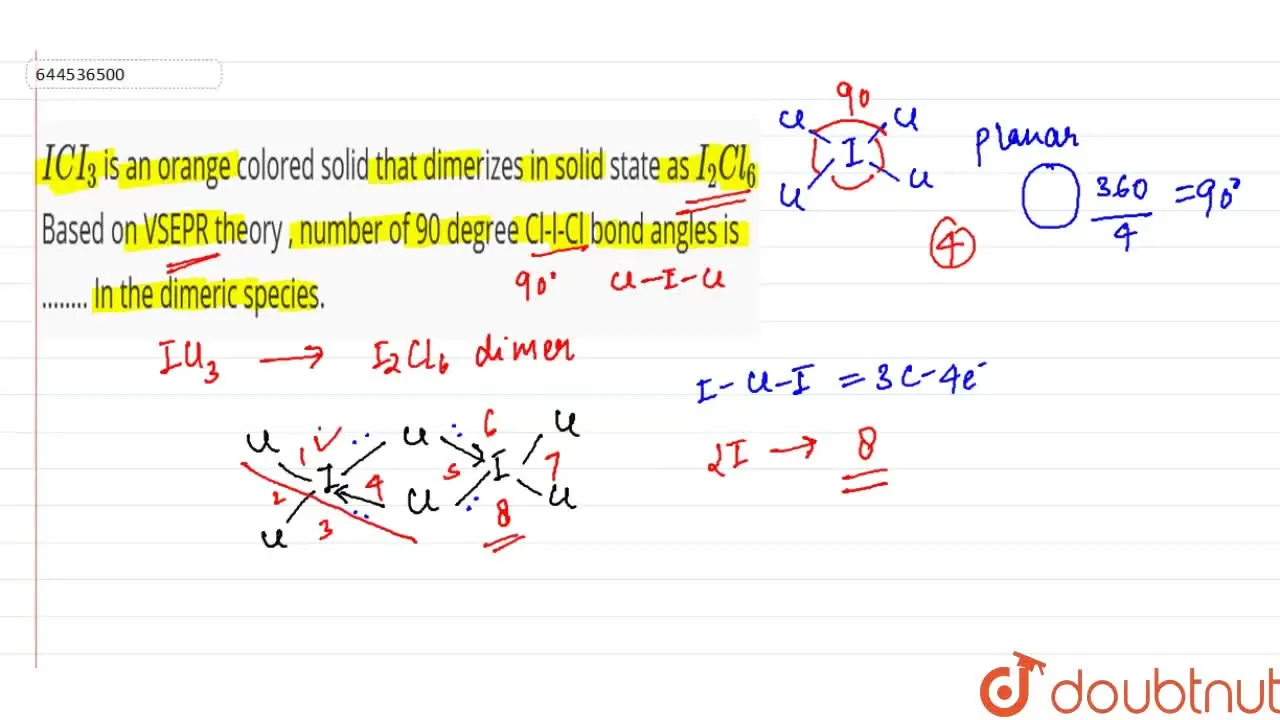 644536500
ICl₃ is an orange colored solid that dimerizes in solid state as I₂Cl₆
Based on VSEPR theory , number of 90 degree Cl-I-Cl bond angles is
........ In the dimeric species.
90° Cl-I-Cl
ICl₃ → I₂Cl₆ dimer
90
Cl Cl
I
Cl Cl
planar
360/4 = 90°
4
I-Cl-I = 3C-4e⁻
2I → 8
Cl Cl 6 Cl
1 I 4 5 I 7
2 3 Cl 8 Cl
Cl
doubtnut